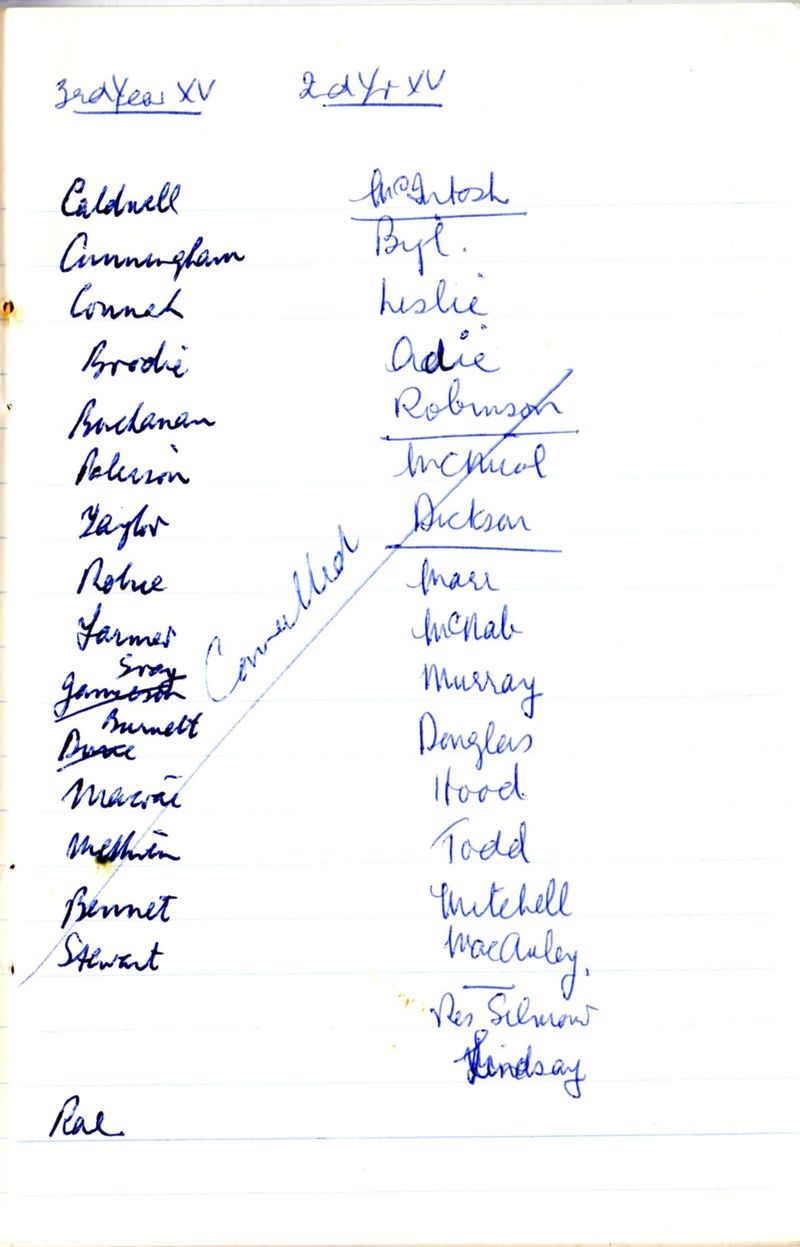 3rd Year XV 2d Yr XV
Caldwell McIntosh
Cunningham Byl.
Connah Leslie
Brodie Adie
Buchanan Robinson
Robinson McNicol
Taylor Dickson
Robue Marr
Farmer McNab
Gray
Jamieson Murray
Burnett
Douglas
Macrae Hood
Methven Todd
Bennet Mitchell
Stewart MacAuley,
Cancelled
Res Gilmour
Lindsay
Rae